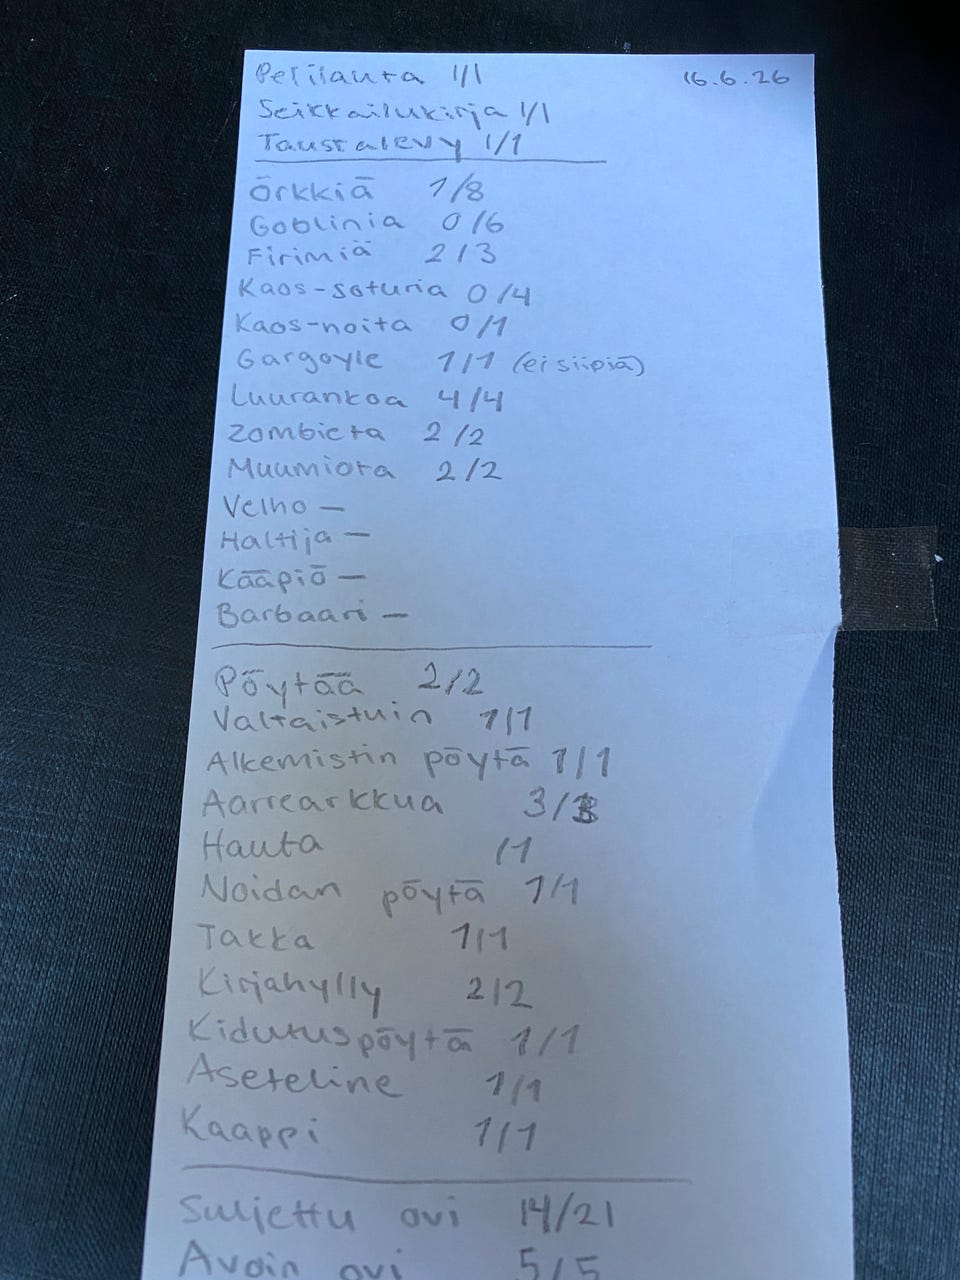 Pelilauta 1/1 16.6.26
Seikkailukirja 1/1
Taustalevy 1/1
Örkkiä 1/8
Goblinia 0/6
Firimiä 2/3
Kaos-soturia 0/4
Kaos-noita 0/1
Gargoyle 1/1 (ei siipiä)
Luurankoa 4/4
Zombieta 2/2
Muumiota 2/2
Velho —
Haltija —
Kääpiö —
Barbaari —
Pöytää 2/2
Valtaistuin 1/1
Alkemistin pöytä 1/1
Aarrearkkua 3/3
Hauta /1
Noidan pöytä 1/1
Takka 1/1
Kirjahylly 2/2
Kidutuspöytä 1/1
Aseteline 1/1
Kaappi 1/1
Suljettu ovi 14/21
Avoin ovi 5/5